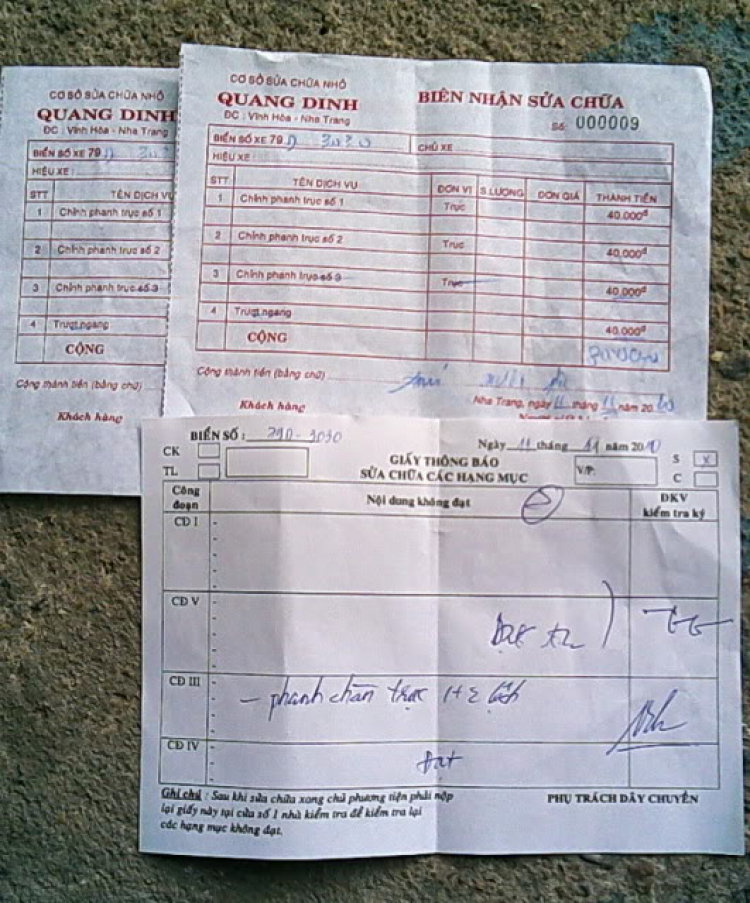 CƠ SỞ SỬA CHỮA NHỎ
QUANG DINH
ĐC : Vĩnh Hòa - Nha Trang
BIỂN SỐ XE 79
HIỆU XE :
STT TÊN DỊCH VỤ
1 Chỉnh phanh trục số 1
2 Chỉnh phanh trục số 2
3 Chỉnh phanh trục số 3
4 Trượt ngang
CỘNG
Cộng thành tiền (bằng chữ)
Khách hàng
CƠ SỞ SỬA CHỮA NHỎ
QUANG DINH
ĐC : Vĩnh Hòa - Nha Trang
BIÊN NHẬN SỬA CHỮA
Số: 000009
BIỂN SỐ XE 79 D 3030 CHỦ XE
HIỆU XE :
STT TÊN DỊCH VỤ ĐƠN VỊ S.LƯỢNG ĐƠN GIÁ THÀNH TIỀN
1 Chỉnh phanh trục số 1 Trục 40.000đ
2 Chỉnh phanh trục số 2 Trục 40.000đ
3 Chỉnh phanh trục số 3 Trục 40.000đ
4 Trượt ngang 40.000đ
CỘNG
Cộng thành tiền (bằng chữ)
Nha Trang, ngày 11 tháng 11 năm 20
Khách hàng
BIỂN SỐ : 79D-3030 Ngày 11 tháng 11 năm 2010
CK
TL
GIẤY THÔNG BÁO
SỬA CHỮA CÁC HẠNG MỤC
V/P:
S x
C
Công đoạn Nội dung không đạt ĐKV kiểm tra ký
CĐ I
CĐ V
CĐ III
- phanh chân trục 1+2 lệch
CĐ IV
Đạt
Ghi chú : Sau khi sửa chữa xong chủ phương tiện phải nộp
lại giấy này tại cửa số 1 nhà kiểm tra để kiểm tra lại
các hạng mục không đạt.
PHỤ TRÁCH DÂY CHUYỀN